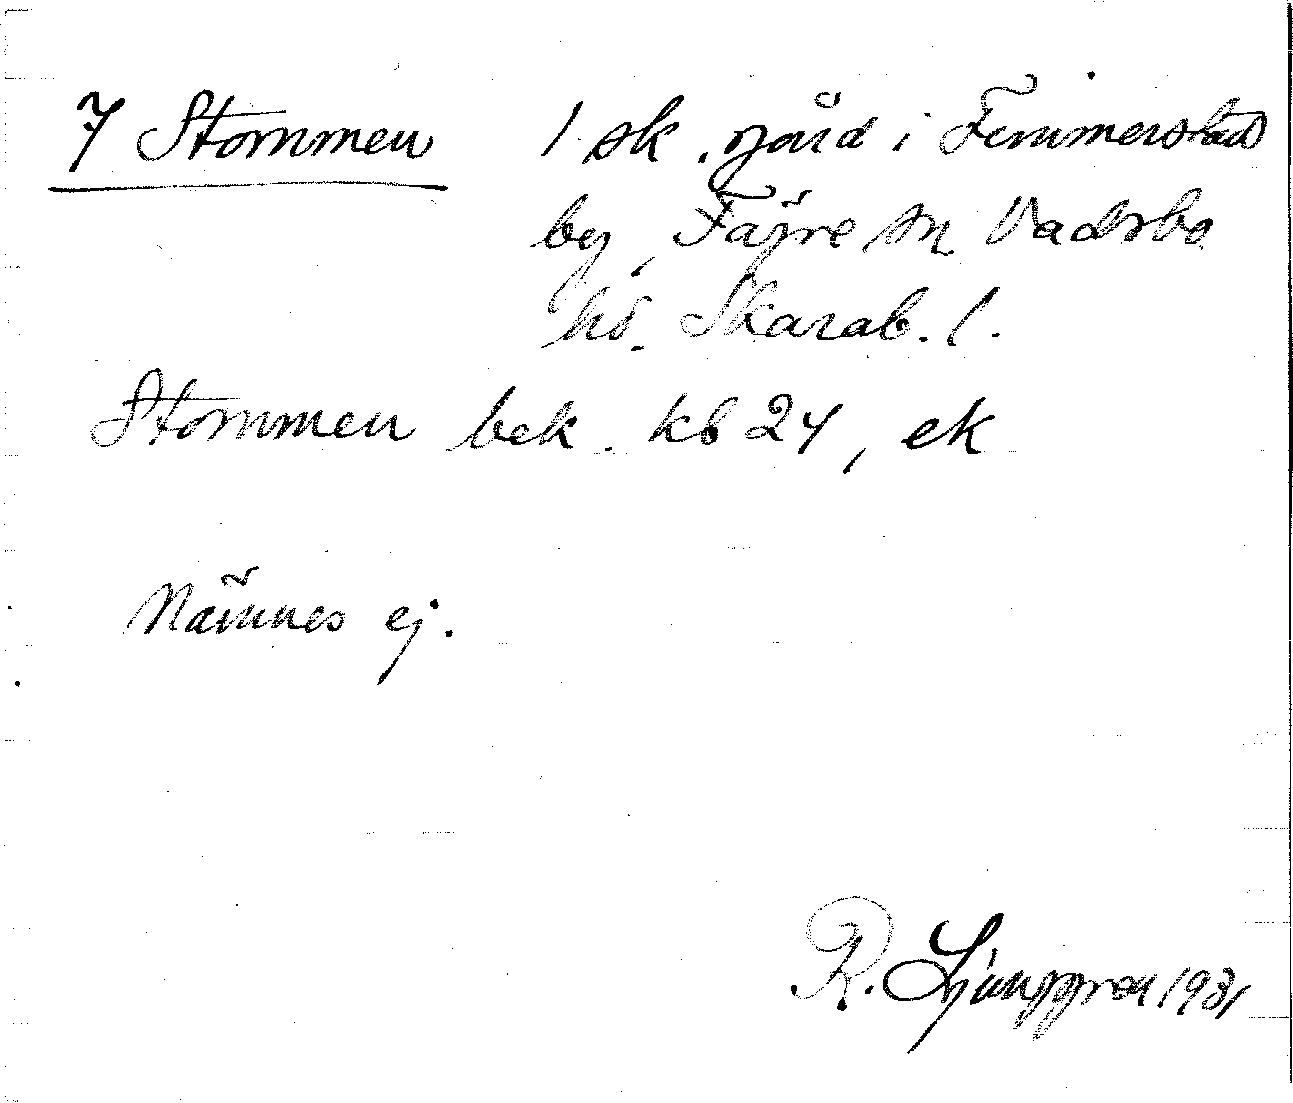 7 Stommen 1 sk. gård i Femmerstad
by, Fägre sn. Vadsbo
hd. Skarab. l.
Stommen bek. kb 24, ek
Nämnes ej.
R. Ljunggren 1931